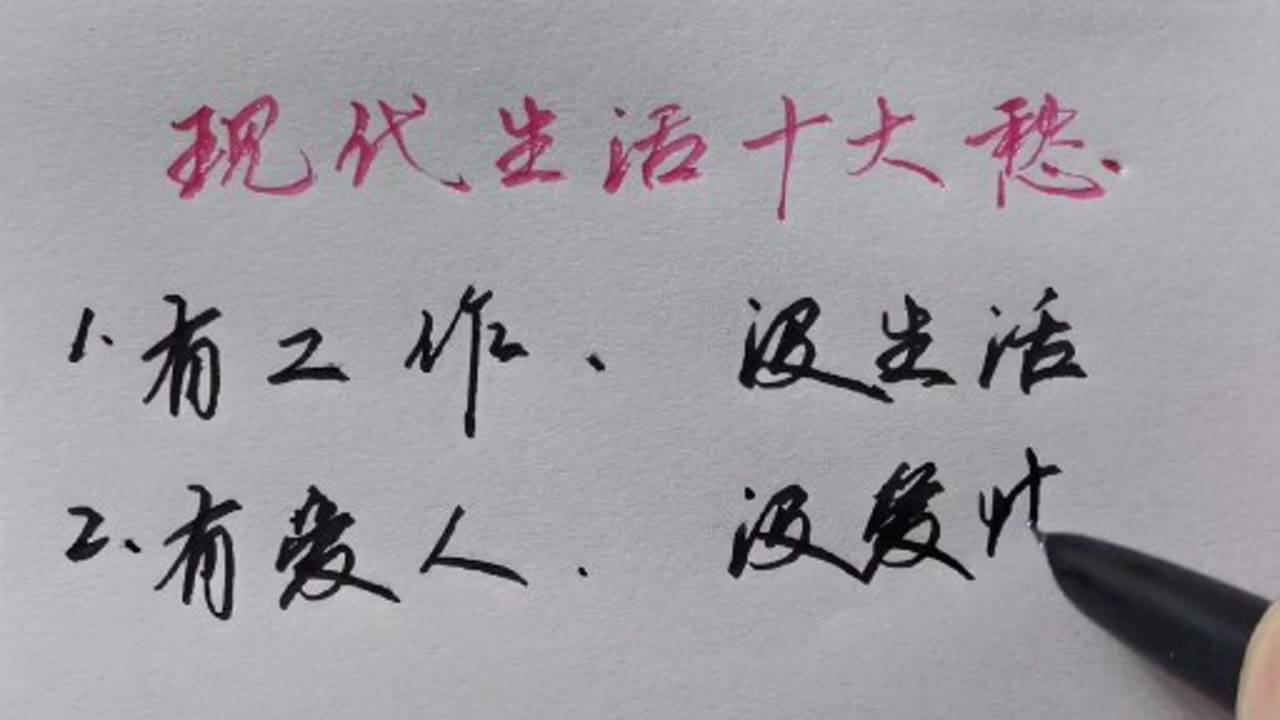 现代生活十大愁
1.有工作、没生活
2.有爱人.没爱